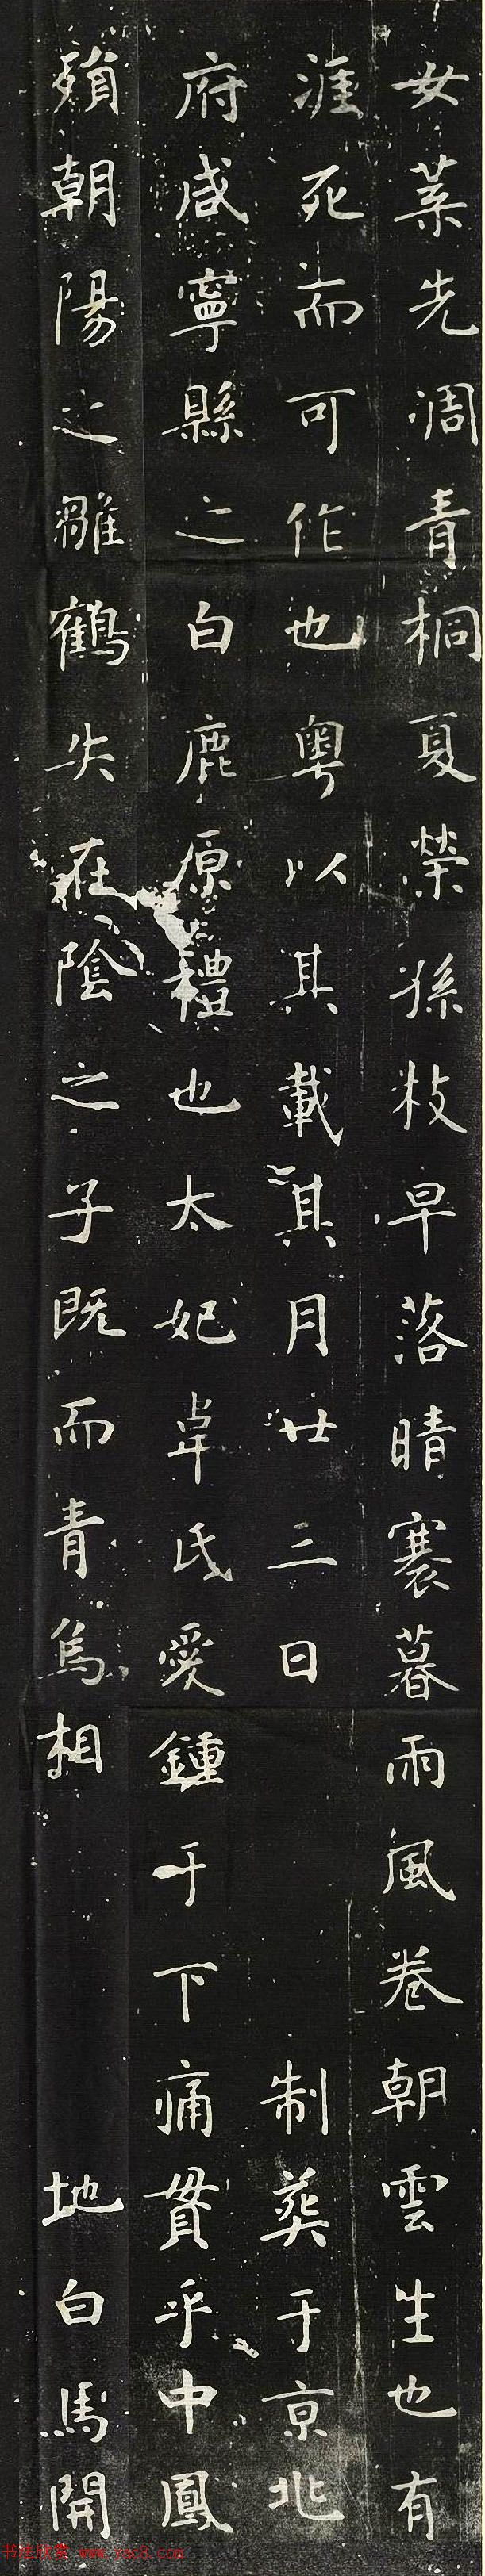 女葉先凋青桐夏榮孫枝早落晴褰暮雨風卷朝雲生也有
涯死而可作也粵以其載其月廿三日　制葬于京兆
府咸寧縣之白鹿原禮也太妃韋氏愛鍾于下痛貫乎中鳳
殞朝陽之雛鶴失在陰之子既而青烏相　地白馬開
书法欣赏 www.yac8.com